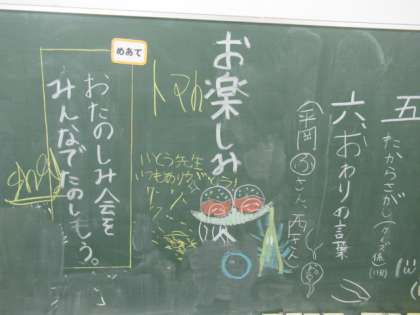 五
たからさがし
六、おわりの言葉
平岡
さん、西さん
お楽しみ
いとう先生
いつもありがとう!
めあて
おたのしみ会を
みんなでたのしもう。